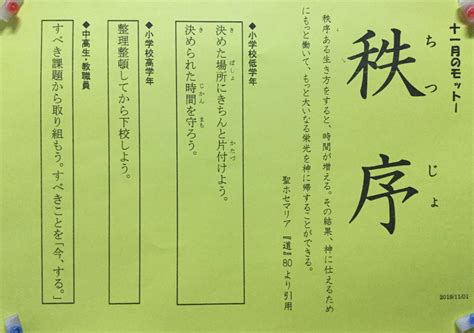 十一月のモットー
秩序
ちつじょ
秩序ある生き方をすると、時間が増える。その結果、神に仕えるため
にもっと働いて、もっと大いなる栄光を神に帰することができる。
聖ホセマリア『道』80より引用
◆小学校低学年
決めた場所にきちんと片付けよう。
決められた時間を守ろう。
◆小学校高学年
整理整頓してから下校しよう。
◆中高生・教職員
すべき課題から取り組もう。すべきことを「今、する。」
2018/11/01